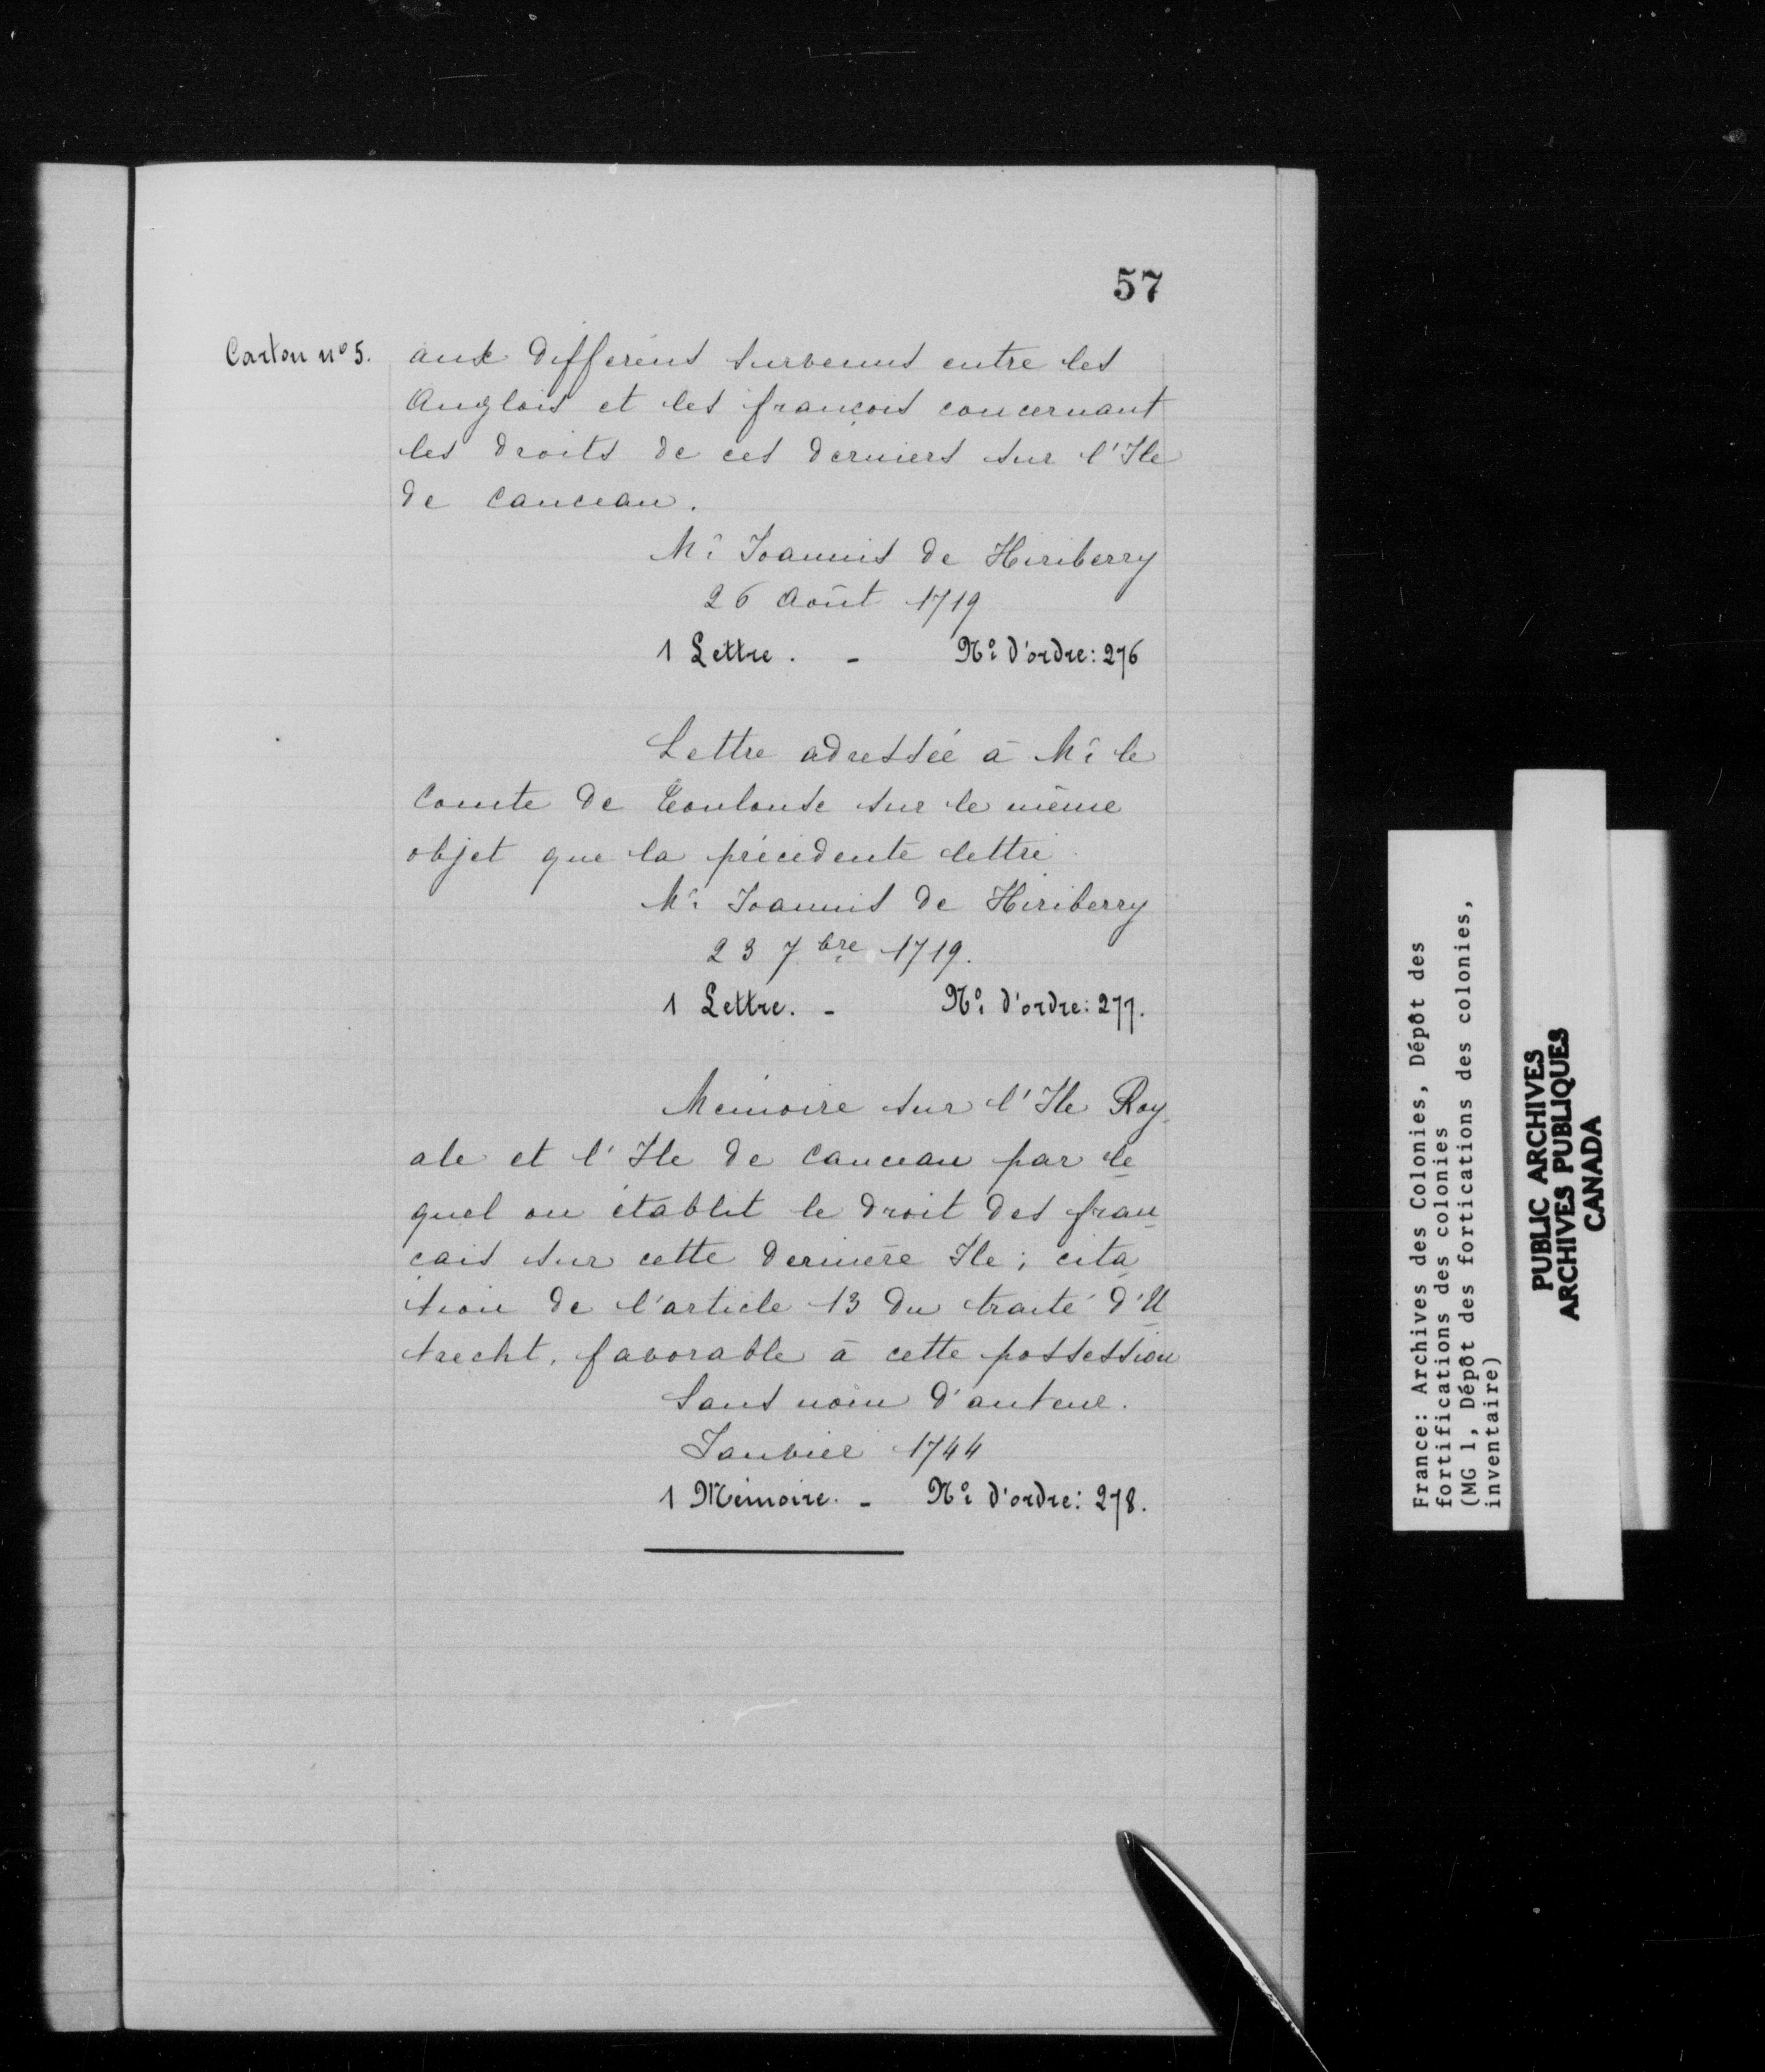 57
Carton nº 5.
aux différens survenus entre les
Anglois et les françois concernant
les droits de ces derniers sur l'Ile
de Canceau.
Mr Joannis de Hiriberry
26 Août 1719
1 Lettre. - Nº d'ordre: 276
Lettre adressée à Mr le
Comte de Toulouse sur le même
objet que la précédente lettre
Mr Joannis de Hiriberry
23 7bre 1719.
1 Lettre. - Nº d'ordre: 277.
Mémoire sur l'Ile Roy-
ale et l'Ile de Canceau par le-
quel on établit le droit des fran-
cais sur cette dernière Ile; cita-
tion de l'article 13 du traité d'U-
trecht, favorable à cette possession
Sans nom d'auteur.
Janvier 1744
1 Mémoire. - Nº d'ordre: 278.
France: Archives des Colonies, Dépôt des
fortifications des colonies
(MG 1, Dépôt des fortications des colonies,
inventaire)
PUBLIC ARCHIVES
ARCHIVES PUBLIQUES
CANADA